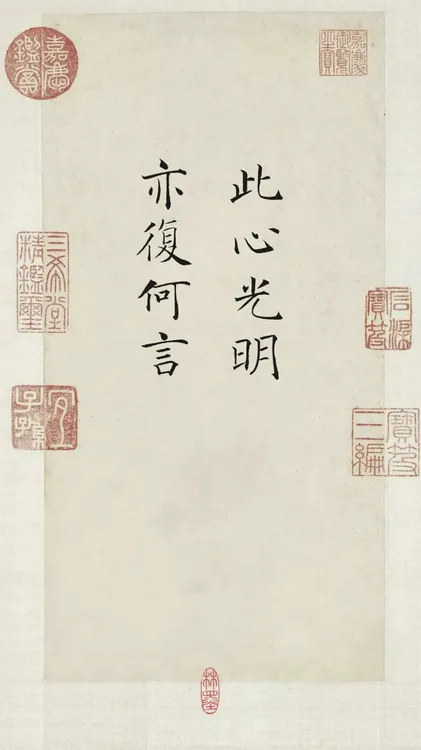 此心光明
亦復何言
嘉慶御覽之寶
石渠寶笈
寶笈三編
嘉慶鑑賞
三希堂精鑑璽
宜子孫